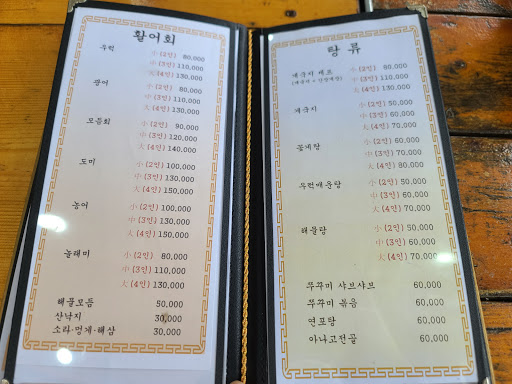 활어회
우럭 小(2인) 80,000
中(3인) 110,000
大(4인) 130,000
광어 小(2인) 80,000
中(3인) 110,000
大(4인) 130,000
모듬회 小(2인) 90,000
中(3인) 120,000
大(4인) 140,000
도미 小(2인) 100,000
中(3인) 130,000
大(4인) 150,000
농어 小(2인) 100,000
中(3인) 130,000
大(4인) 150,000
놀래미 小(2인) 80,000
中(3인) 110,000
大(4인) 130,000
해물모듬 50,000
산낙지 30,000
소라·멍게·해삼 30,000
탕 류
게국지 세트 小(2인) 90,000
中(3인) 110,000
大(4인) 130,000
게국지 小(2인) 50,000
中(3인) 60,000
大(4인) 70,000
꽃게탕 小(2인) 60,000
中(3인) 70,000
大(4인) 80,000
우럭매운탕 小(2인) 50,000
中(3인) 60,000
大(4인) 70,000
해물탕 小(2인) 50,000
中(3인) 60,000
大(4인) 70,000
쭈꾸미 샤브샤브 60,000
쭈꾸미 볶음 60,000
연포탕 60,000
아나고전골 60,000